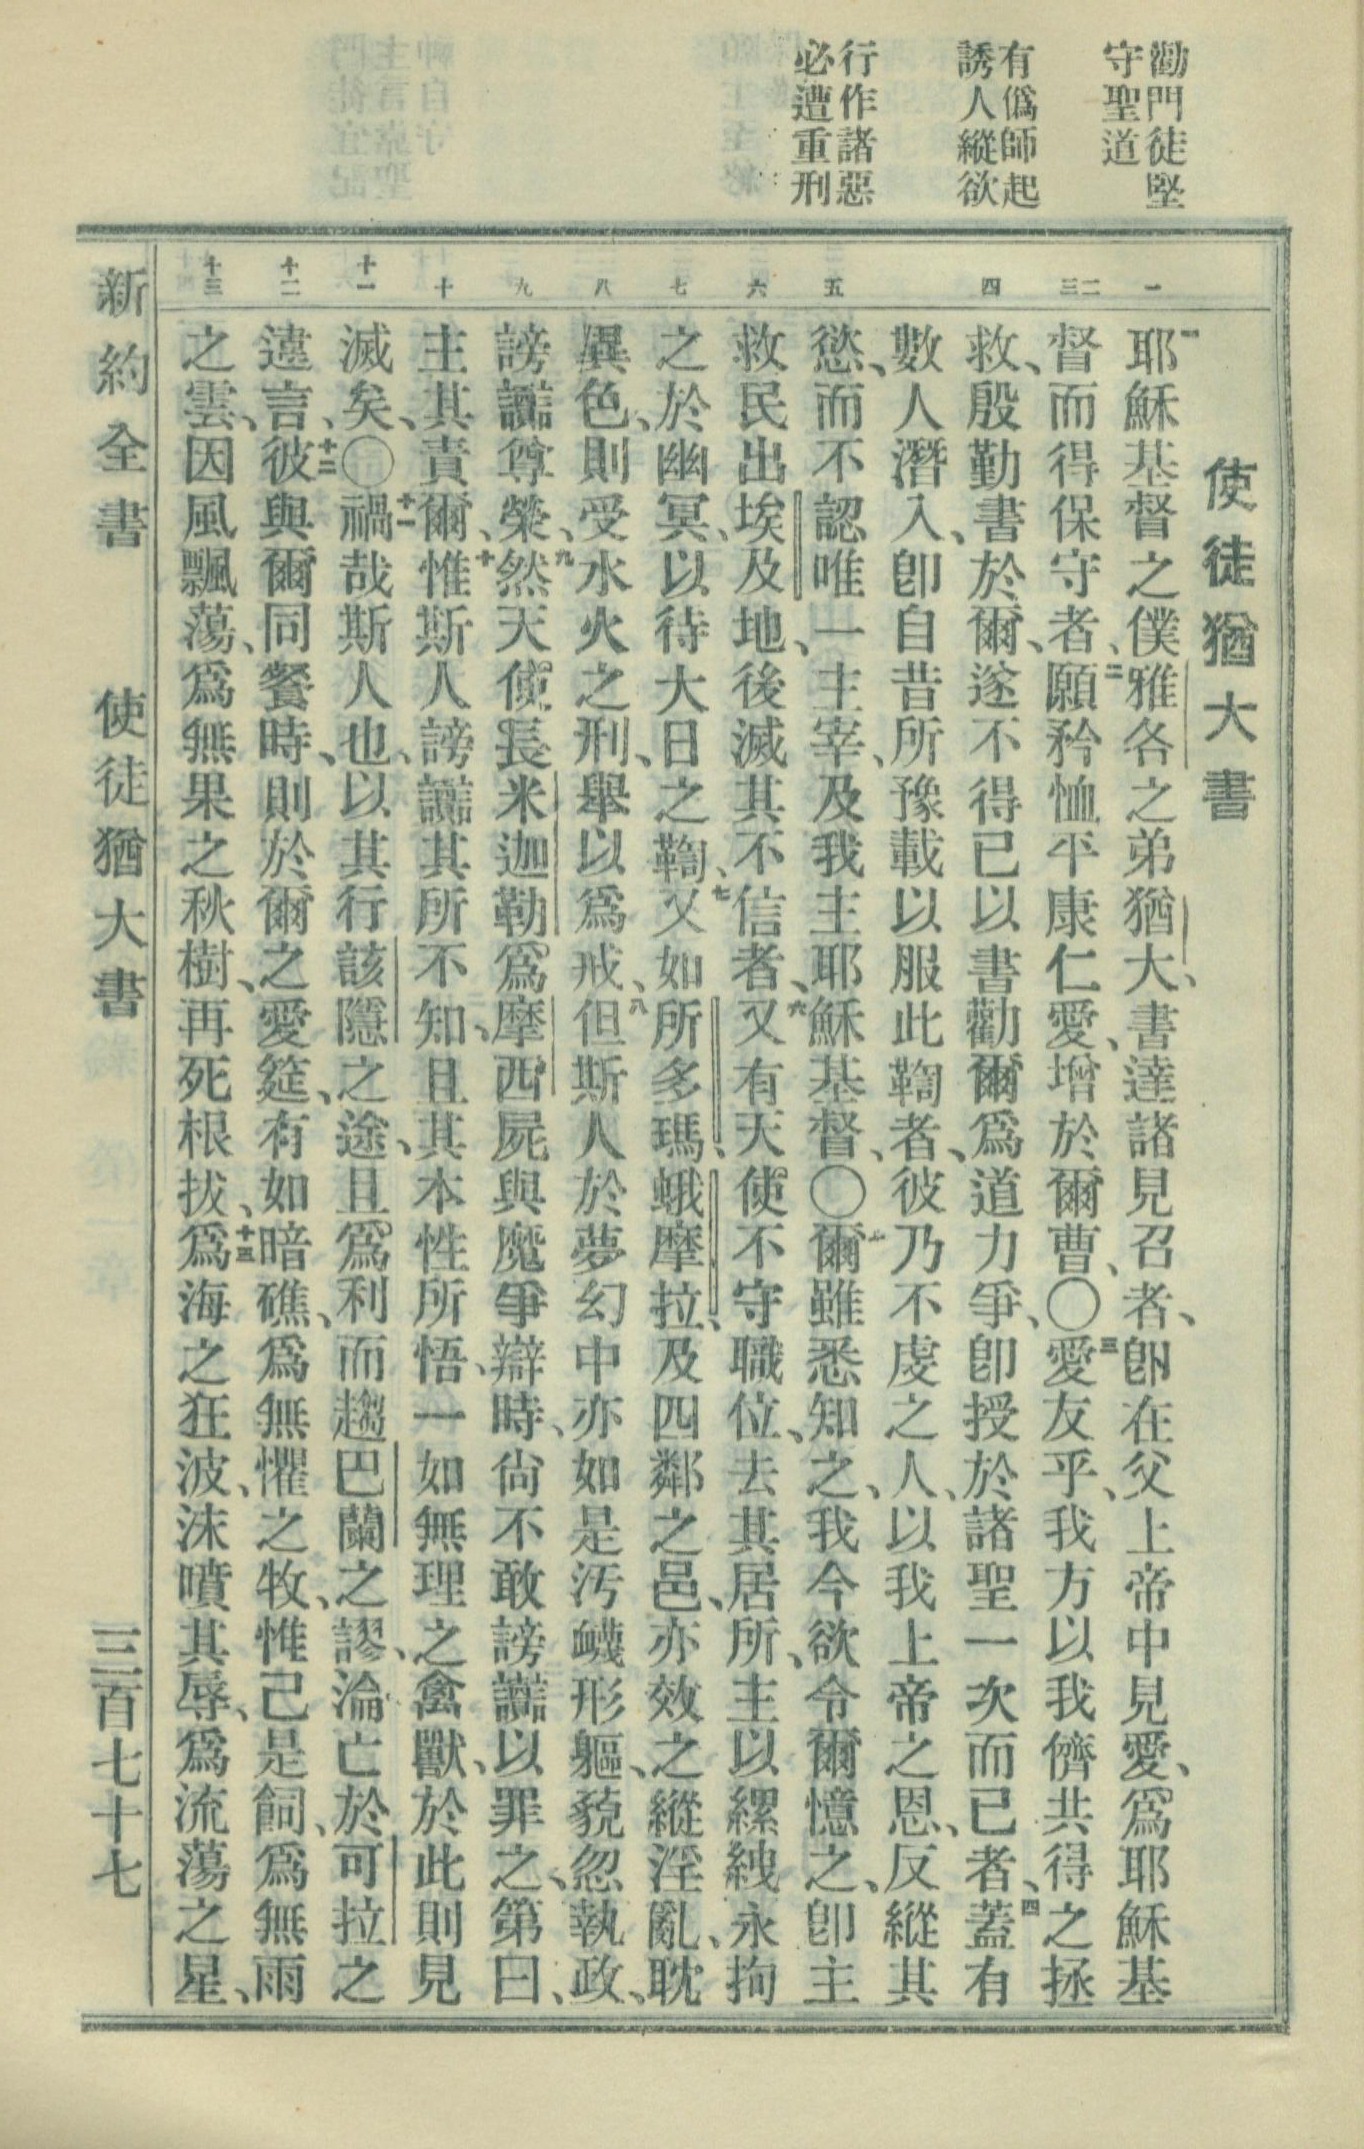 勸門徒堅
守聖道
有僞師起
誘人縱欲
行作諸惡
必遭重刑
使徒猶大書
一
二
三
四
五
六
七
八
九
十
十一
十二
十三
一耶穌基督之僕雅各之弟猶大、書達諸見召者、卽在父上帝中見愛、爲耶穌基
督而得保守者、二願矜恤平康仁愛、增於爾曹、〇三愛友乎、我方以我儕共得之拯
救、殷勤書於爾、遂不得已以書勸爾爲道力爭、卽授於諸聖一次而已者、四蓋有
數人潛入、卽自昔所豫載以服此鞫者、彼乃不虔之人、以我上帝之恩、反縱其
慾、而不認唯一主宰、及我主耶穌基督、〇五爾雖悉知之、我今欲令爾憶之、卽主
救民出埃及地、後滅其不信者、六又有天使不守職位、去其居所、主以縲絏永拘
之於幽冥、以待大日之鞫、七又如所多瑪、蛾摩拉、及四鄰之邑、亦效之縱淫亂、耽
異色、則受水火之刑、舉以爲戒、八但斯人於夢幻中亦如是汚衊形軀、藐忽執政、
謗讟尊榮、九然天使長米迦勒爲摩西屍與魔爭辯時、尙不敢謗讟以罪之、第曰、
主其責爾、十惟斯人謗讟其所不知、且其本性所悟、一如無理之禽獸、於此則見
滅矣、〇十一禍哉斯人也、以其行該隱之途、且爲利而趨巴蘭之謬、淪亡於可拉之
違言、十二彼與爾同餐時、則於爾之愛筵、有如暗礁、爲無懼之牧、惟己是飼、爲無雨
之雲、因風飄蕩、爲無果之秋樹、再死根拔、十三爲海之狂波、沫噴其辱、爲流蕩之星、
新約全書 使徒猶大書 三百七十七